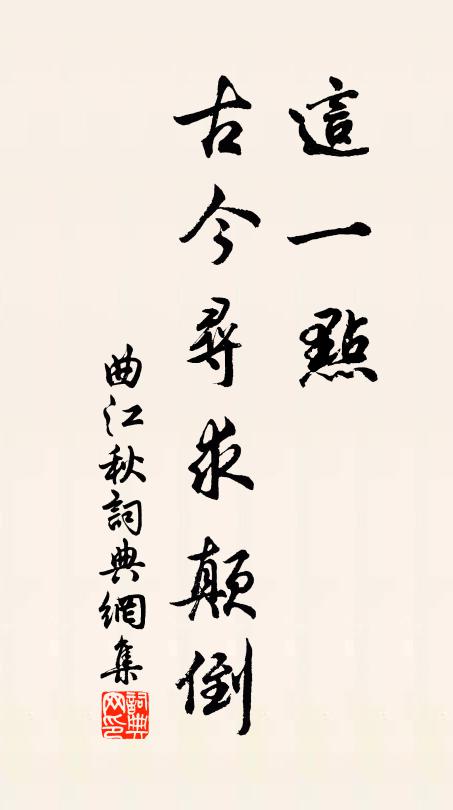 這一點
古今尋求顛倒
曲江秋詞典網集
詞典
网印